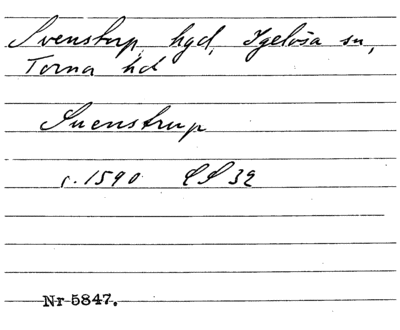 Svenstorp, hgd, Igelösa sn,
Torna hd
Suenstrup
c. 1590 LS 32
Nr 5847.